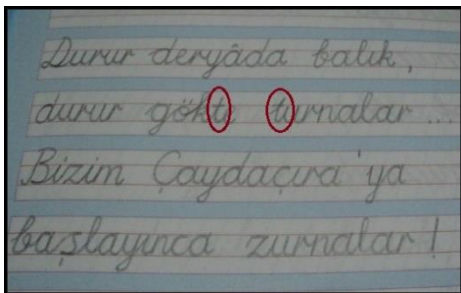 Durur deryâda balık,
durur gökte turnalar...
Bizim Çaydaçıra'ya
başlayınca zurnalar!